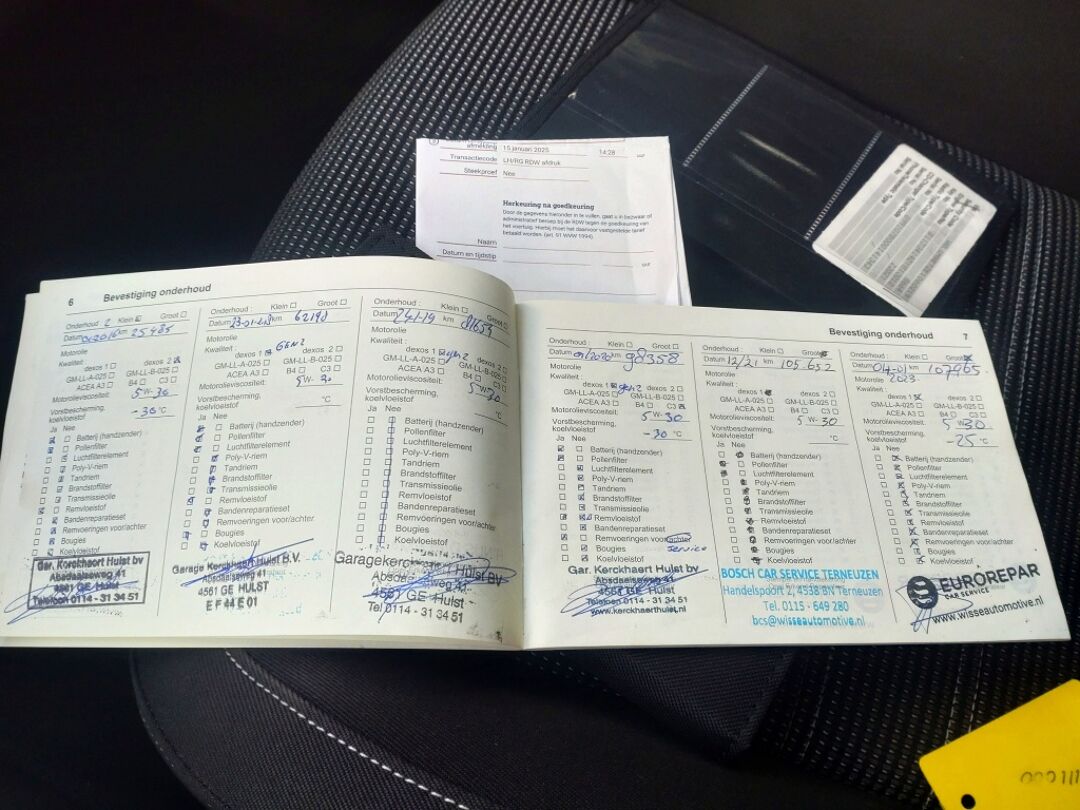 afmelding 15 januari 2025 14:28 uur
Transactiecode LH/RG RDW afdruk
Steekproef Nee
Herkeuring na goedkeuring
Door de gegevens hieronder in te vullen, gaat u in bezwaar of
administratief beroep bij de RDW tegen de goedkeuring van
het voertuig. Hierbij moet het daarvoor vastgestelde tarief
betaald worden. (art. 91 WVW 1994).
Naam
Datum en tijdstip uur
6 Bevestiging onderhoud
Onderhoud 2 Klein Groot
Datum km 25485
Motorolie
Kwaliteit: dexos 1 dexos 2
GM-LL-A-025 GM-LL-B-025
ACEA A3 B4 C3
Motorolieviscositeit: 5W-30
Vorstbescherming,
koelvloeistof -36 °C
Ja Nee
Batterij (handzender)
Pollenfilter
Luchtfilterelement
Poly-V-riem
Tandriem
Brandstoffilter
Transmissieolie
Remvloeistof
Bandenreparatieset
Remvoeringen voor/achter
Bougies
Koelvloeistof
Gar. Kerckhaert Hulst bv
Absdaalseweg 41
4561 GE Hulst
Telefoon 0114 - 31 34 51
Onderhoud : Klein Groot
Datum 23-01-18 km 62198
Motorolie
Kwaliteit : GEN2
dexos 1 dexos 2
GM-LL-A-025 GM-LL-B-025
ACEA A3 B4 C3
Motorolieviscositeit: 5W-30
Vorstbescherming,
koelvloeistof °C
Ja Nee
Batterij (handzender)
Pollenfilter
Luchtfilterelement
Poly-V-riem
Tandriem
Brandstoffilter
Transmissieolie
Remvloeistof
Bandenreparatieset
Remvoeringen voor/achter
Bougies
Koelvloeistof
Garage Kerckhaert Hulst B.V.
Absdaalseweg 41
4561 GE HULST
EF44E01
Onderhoud : Klein Groot
Datum 24-1-19 km 81653
Motorolie
Kwaliteit :
dexos 1 gen2 dexos 2
GM-LL-A-025 GM-LL-B-025
ACEA A3 B4 C3
Motorolieviscositeit: 5W-30
Vorstbescherming,
koelvloeistof °C
Ja Nee
Batterij (handzender)
Pollenfilter
Luchtfilterelement
Poly-V-riem
Tandriem
Brandstoffilter
Transmissieolie
Remvloeistof
Bandenreparatieset
Remvoeringen voor/achter
Bougies
Koelvloeistof
Garage Kerckhaert Hulst BV
Absdaalseweg 41
4561 GE Hulst
Tel 0114 - 31 34 51
Bevestiging onderhoud 7
Onderhoud : Klein Groot
Datum 01/2020 km 98358
Motorolie
Kwaliteit :
dexos 1 gen2 dexos 2
GM-LL-A-025 GM-LL-B-025
ACEA A3 B4 C3
Motorolieviscositeit: 5W-30
Vorstbescherming,
koelvloeistof -30 °C
Ja Nee
Batterij (handzender)
Pollenfilter
Luchtfilterelement
Poly-V-riem
Tandriem
Brandstoffilter
Transmissieolie
Remvloeistof
Bandenreparatieset
Remvoeringen voor/achter
Bougies service
Koelvloeistof
Gar. Kerckhaert Hulst bv
Absdaalseweg 41
4561 GE Hulst
Telefoon 0114 - 31 34 51
www.kerckhaerthulst.nl
Onderhoud : Klein Groot
Datum 12/21 km 105.652
Motorolie
Kwaliteit :
dexos 1 dexos 2
GM-LL-A-025 GM-LL-B-025
ACEA A3 B4 C3
Motorolieviscositeit: 5W-30
Vorstbescherming,
koelvloeistof °C
Ja Nee
Batterij (handzender)
Pollenfilter
Luchtfilterelement
Poly-V-riem
Tandriem
Brandstoffilter
Transmissieolie
Remvloeistof
Bandenreparatieset
Remvoeringen voor/achter
Bougies
Koelvloeistof
BOSCH CAR SERVICE TERNEUZEN
Handelspoort 2, 4538 BN Terneuzen
Tel. 0115 - 649 280
bcs@wisseautomotive.nl
Onderhoud : Klein Groot
Datum 04-01 km 107965
Motorolie 2023
Kwaliteit :
dexos 1 dexos 2
GM-LL-A-025 GM-LL-B-025
ACEA A3 B4 C3
Motorolieviscositeit: 5W30
Vorstbescherming,
koelvloeistof -25 °C
Ja Nee
Batterij (handzender)
Pollenfilter
Luchtfilterelement
Poly-V-riem
Tandriem
Brandstoffilter
Transmissieolie
Remvloeistof
Bandenreparatieset
Remvoeringen voor/achter
Bougies
Koelvloeistof
EUROREPAR
CAR SERVICE
www.wisseautomotive.nl